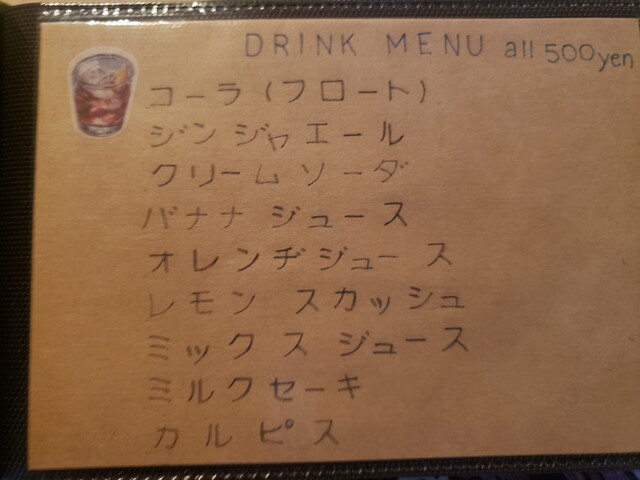 DRINK MENU all 500yen
コーラ(フロート)
ジンジャエール
クリームソーダ
バナナ ジュース
オレンヂジュース
レモン スカッシュ
ミックス ジュース
ミルクセーキ
カルピス